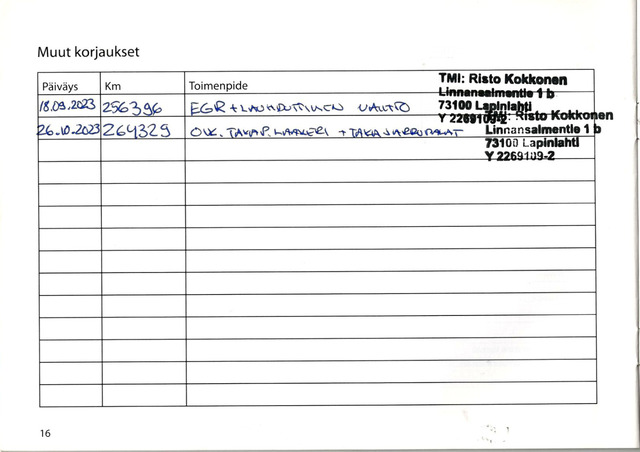 Muut korjaukset
Päiväys Km Toimenpide
TMI: Risto Kokkonen
Linnansalmentie 1 b
73100 Lapinlahti
Y 2269109-2
18.09.2023 256396 EGR + LAUHDUTTIMEN VAIHTO
26.10.2023 264329 OIK. TAKAP. LAAKERI + TAKAJARRUPALAT
TMI: Risto Kokkonen
Linnansalmentie 1 b
73100 Lapinlahti
Y 2269109-2
16